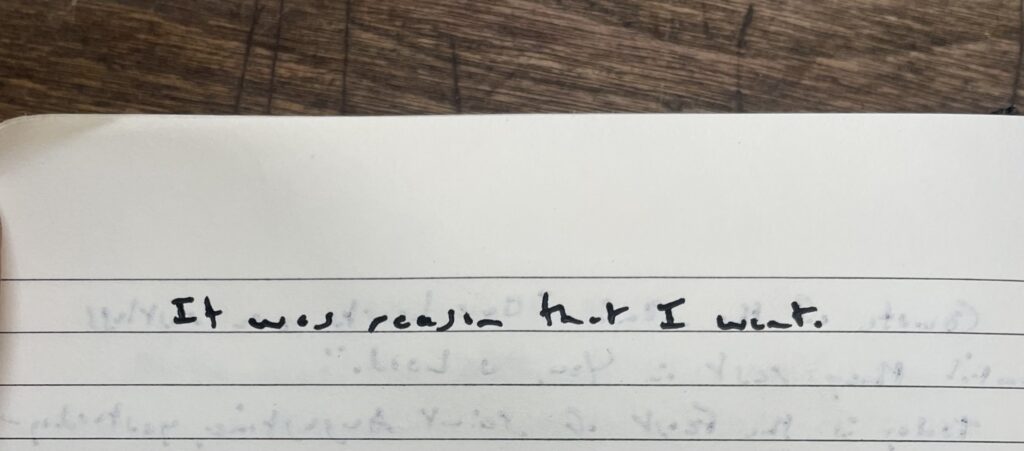 It was reason that I went.